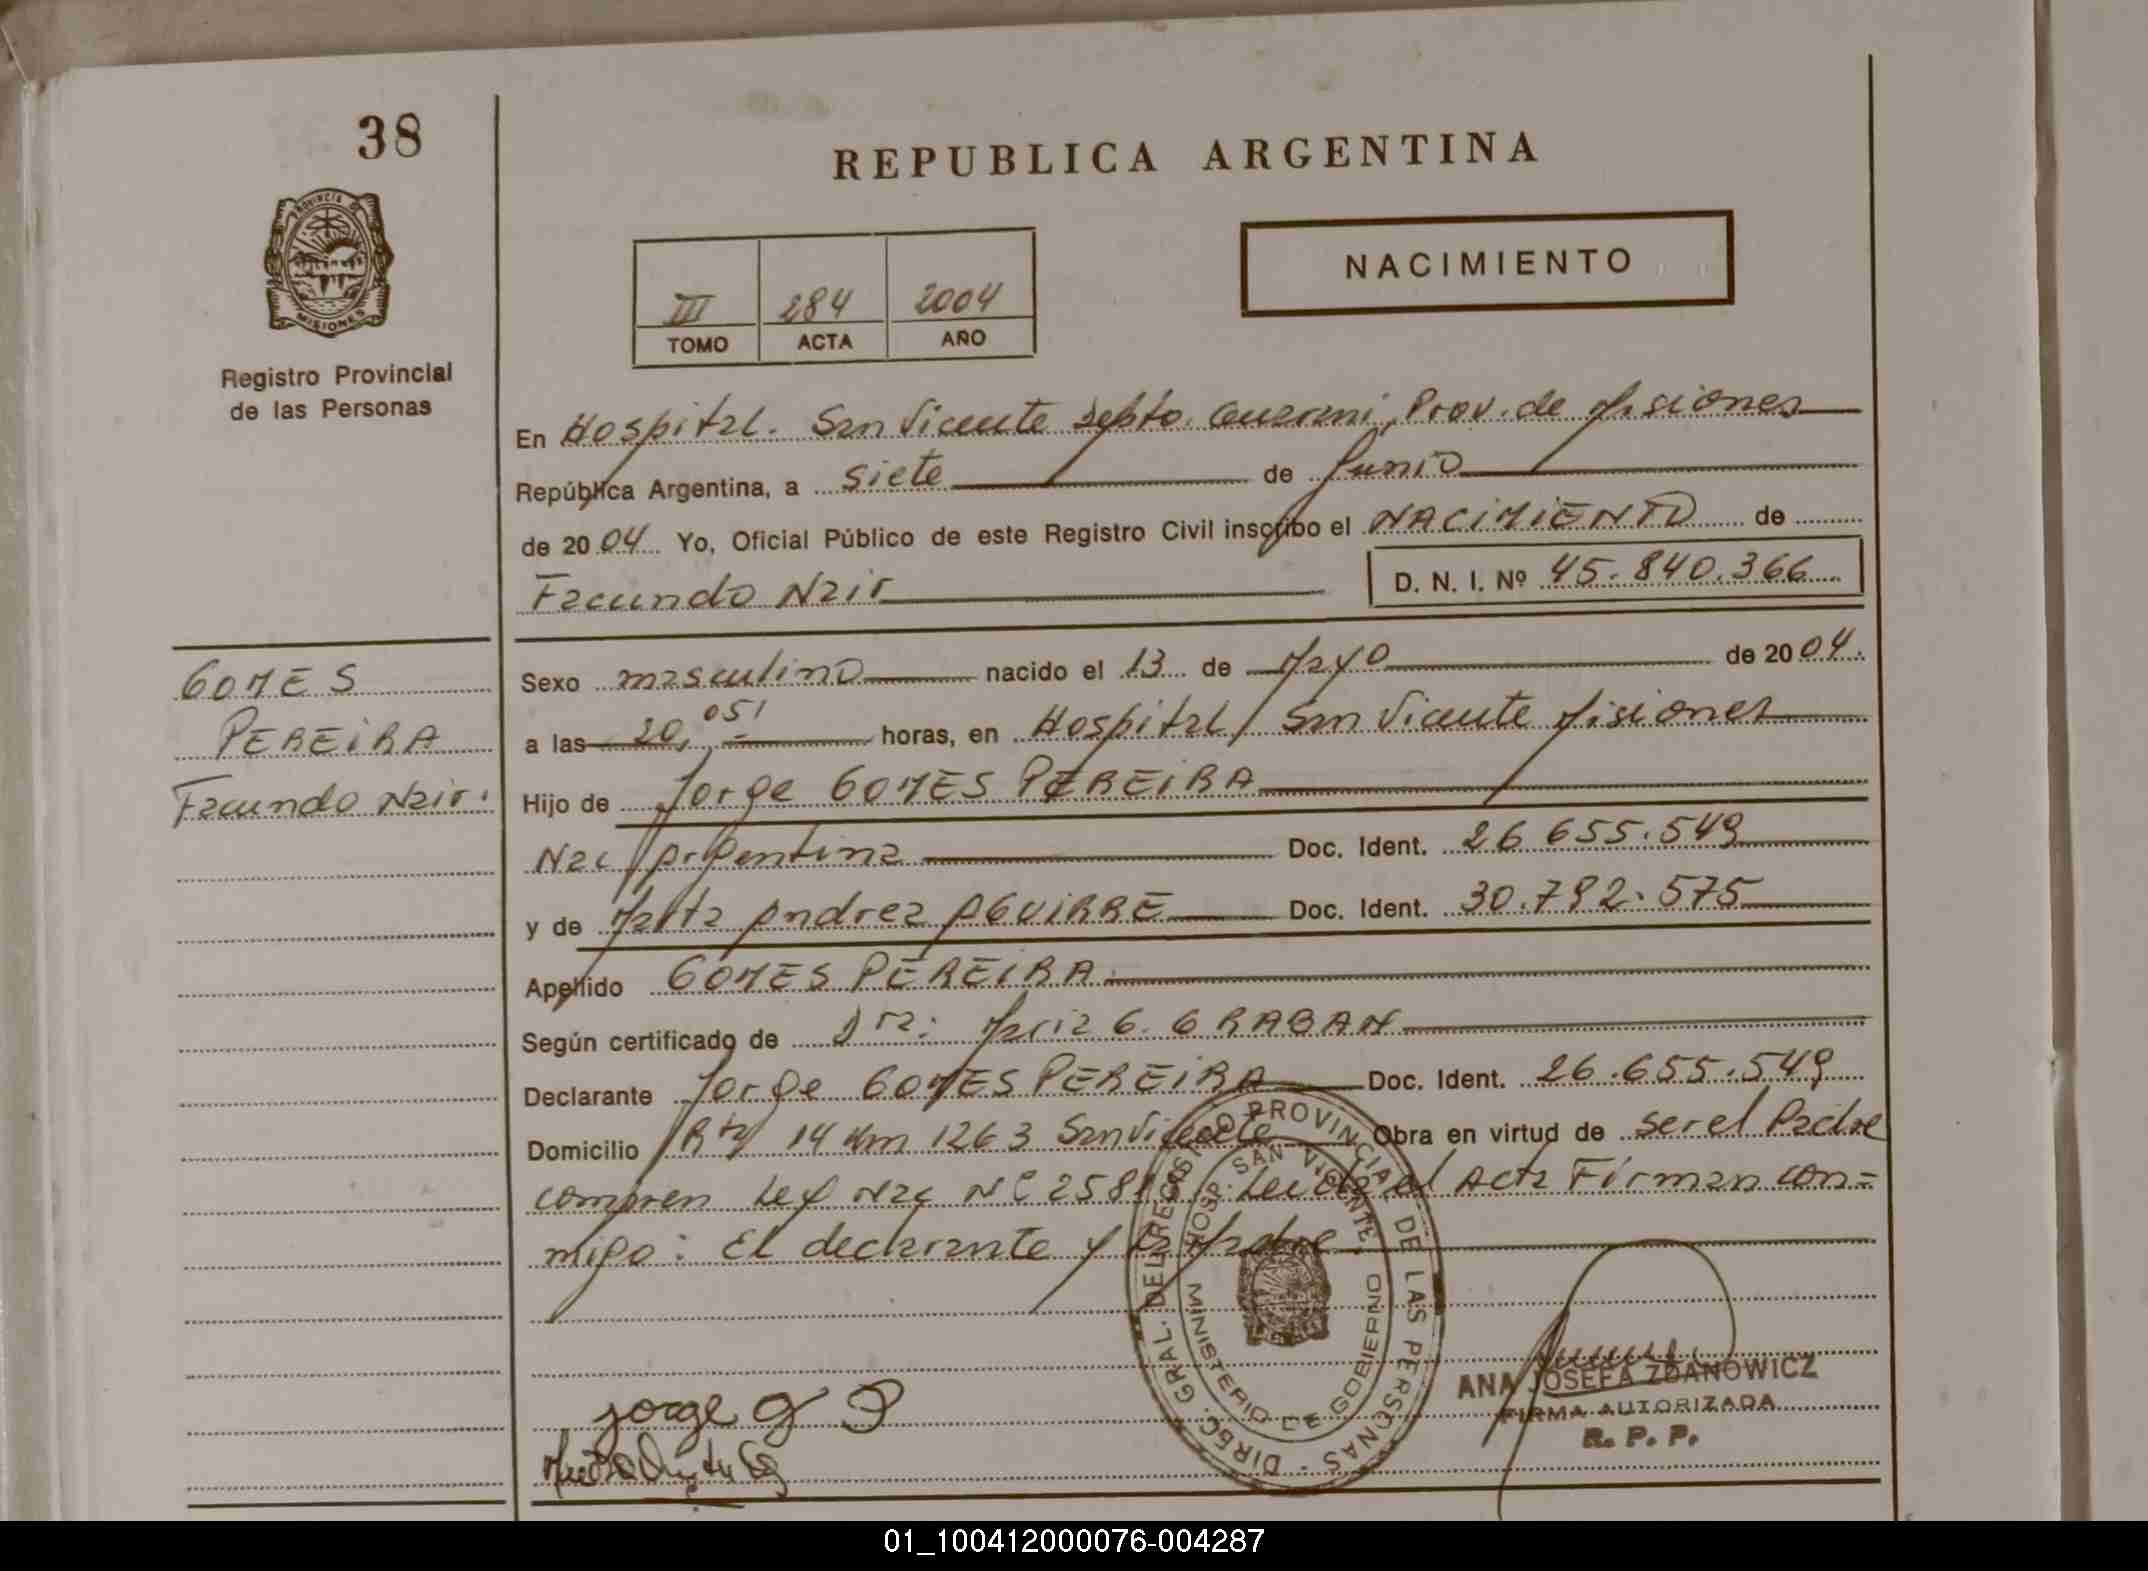 38
REPUBLICA ARGENTINA
PROVINCIA DE
MISIONES
NACIMIENTO
III 284 2004
TOMO ACTA AÑO
Registro Provincial
de las Personas
En Hospital. San Vicente Depto. Guarani, Prov. de Misiones
República Argentina, a siete de Junio
de 2004 Yo, Oficial Público de este Registro Civil inscribo el NACIMIENTO de
Facundo Nair D. N. I. Nº 45.840.366
GOMES
PEREIRA
Facundo Nair.
Sexo masculino nacido el 13 de Mayo de 2004.
a las 20, 05' horas, en Hospital San Vicente Misiones
Hijo de Jorge GOMES PEREIRA
Nac Argentina Doc. Ident. 26 655.549
y de Marta Andrea AGUIRRE Doc. Ident. 30.792.575
Apellido GOMES PEREIRA.
Según certificado de Dra: Maria G. GRABAN
Declarante Jorge GOMES PEREIRA Doc. Ident. 26.655.549
Domicilio Rta 14 Km 1263 San Vicente Obra en virtud de ser el Padre
Ley Nac Nº Leida el Acta Firman con=
migo: El declarante y la Madre.
DIREC. GRAL. DEL REGISTRO PROVINCIAL DE LAS PERSONAS
HOSP. SAN VICENTE
MINISTERIO DE GOBIERNO
jorge g P
ANA JOSEFA ZDANOWICZ
FIRMA AUTORIZADA
R. P. P.
01_100412000076-004287